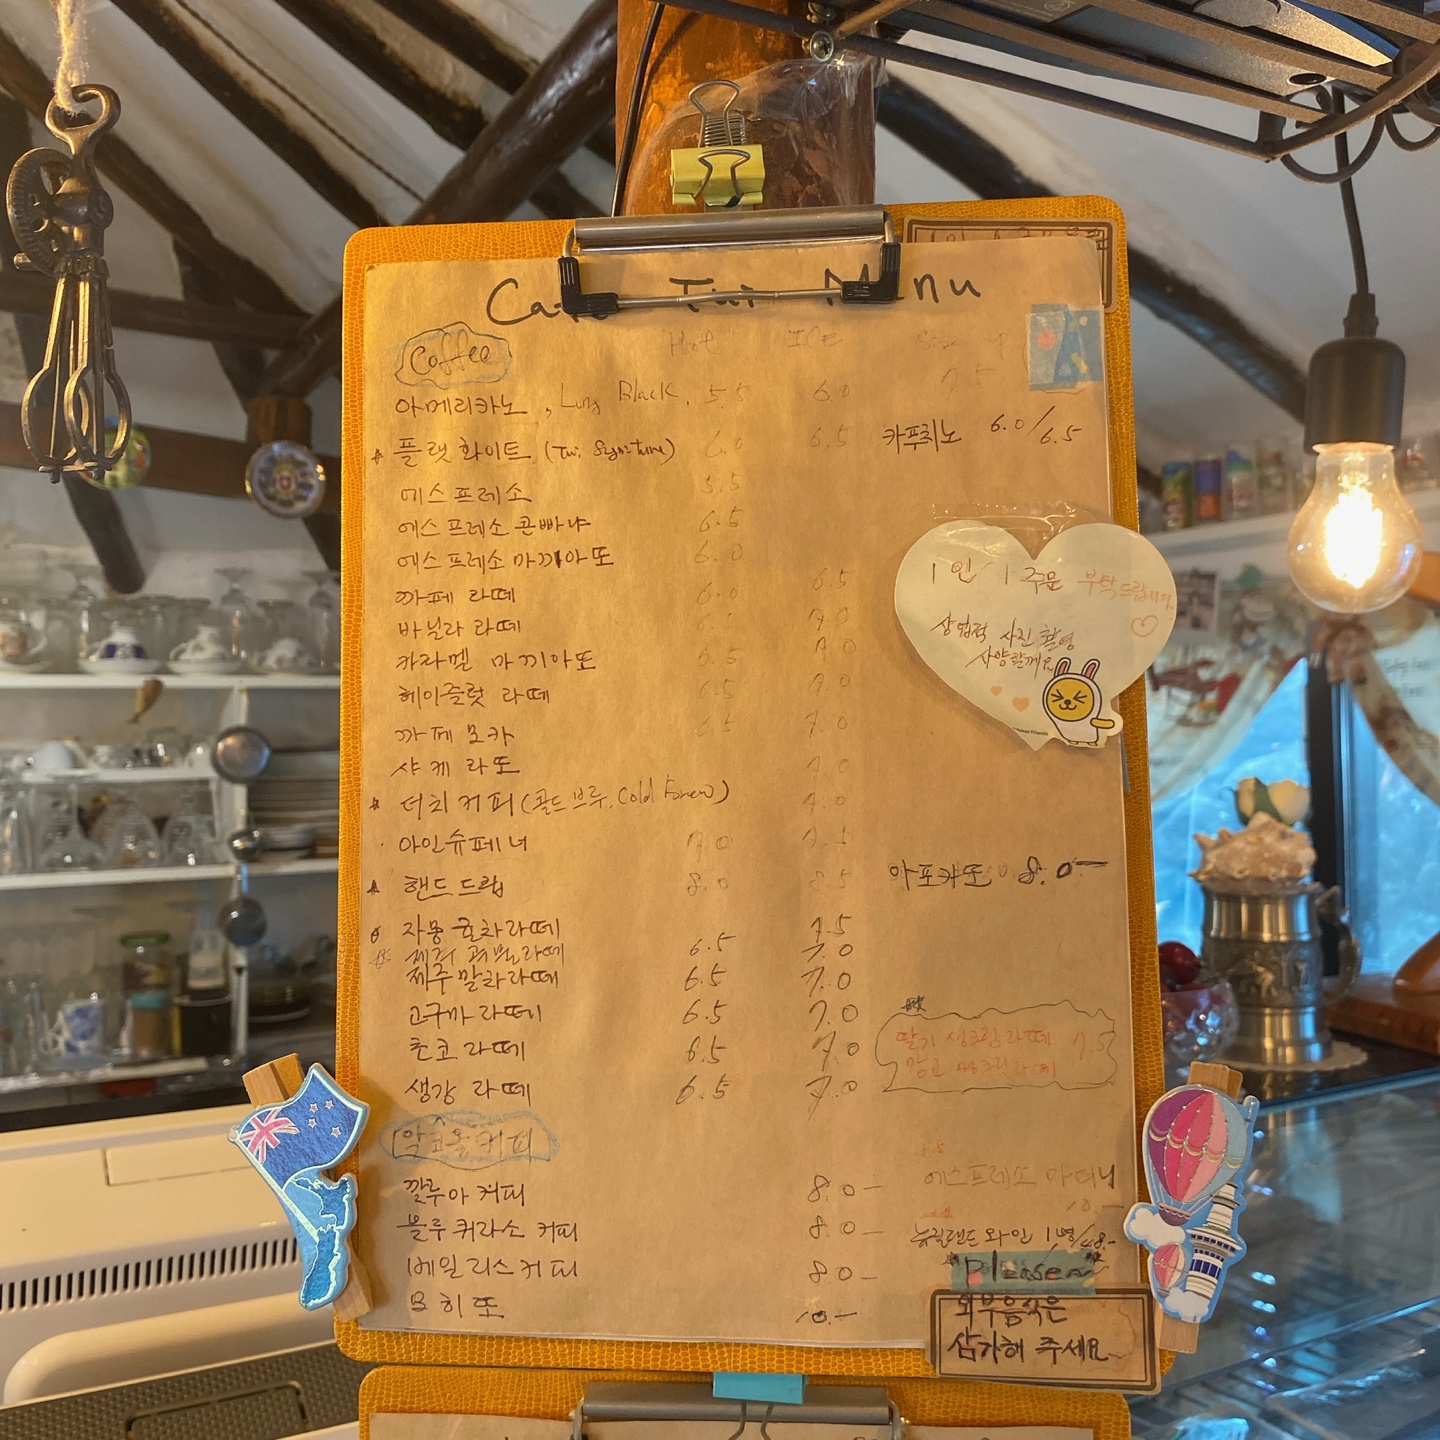 Cafe Tui Menu
Coffee Hot ICE
아메리카노, Long Black. 5.5 6.0 7.5
플랫 화이트 (Tui Signature) 6.0 6.5 카푸치노 6.0/6.5
에스프레소 5.5
에스프레소 콘빠냐 6.5
에스프레소 마끼아또 6.0
까페 라떼 6.0 6.5
바닐라 라떼 7.0
카라멜 마끼아또 6.5 7.0
헤이즐럿 라떼 6.5 7.0
까페 모카 6.5 7.0
샤케라또 7.0
더치커피 (콜드브루, Cold Brew) 7.0
아인슈페너 7.0 7.5
핸드드립 8.0 8.5 아포카또 8.0-
자몽 홍차라떼 7.5
6.5 7.0
제주말차라떼 6.5 7.0
고구마 라떼 6.5 7.0
초코 라떼 6.5 7.0
생강 라떼 6.5 7.0
딸기 생크림라떼 7.5
망고 생크림라떼
알코올커피
깔루아 커피 8.0-
블루 퀴라소 커피 8.0-
베일리스커피 8.0-
모히또 10.-
에스프레소 마티니
10.-
뉴질랜드 와인 1병/48.-
1인 1주문 부탁드립니다.
상업적 사진 촬영
사양할께요
"Please~"
외부음식은
삼가해 주세요